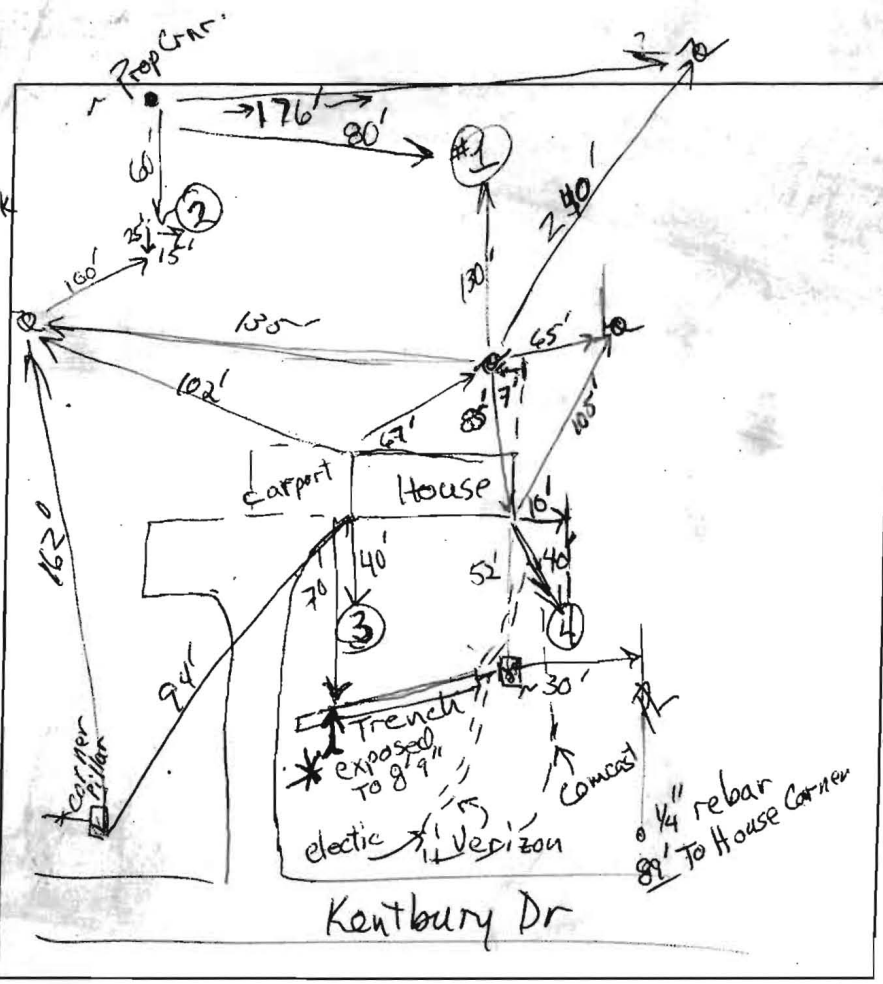 Prop Crnr.
?
→176'→
80'
#1
60'
2
25'
15'
100'
240'
130'
135~
65'
102'
67'
85'
7'
105'
Carport
House
10'
162'
70'
40'
52'
40'
3
4
94'
~30'
PL
Trench
exposed
To 8'9"
Corner
Pillar
Comcast
electic
Verizon
1/4" rebar
89' To House Corner
Kentbury Dr